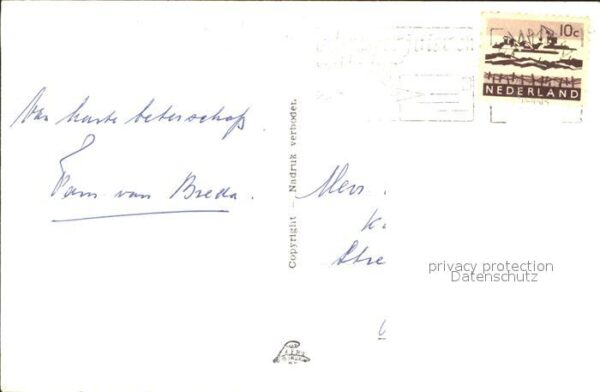 10c
NEDERLAND
Van harte beterschap
Fam van Breda.
Copyright - Nadruk verboden.
Mevr.
K
Stre
privacy protection
Datenschutz